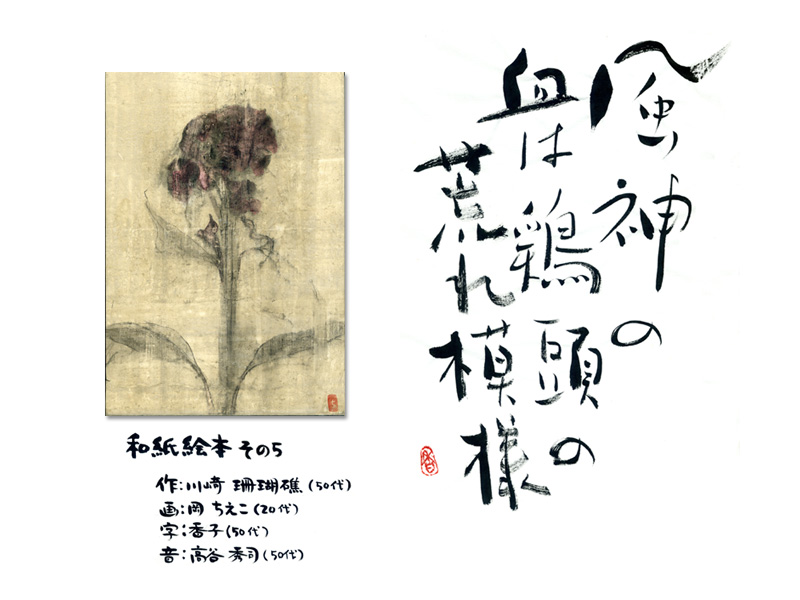 風神の
血は鶏頭の
荒れ模様
和紙絵本 その5
作:川崎 珊瑚礁(50代)
画:岡 ちえこ(20代)
字:香子(50代)
音:高谷 秀司(50代)